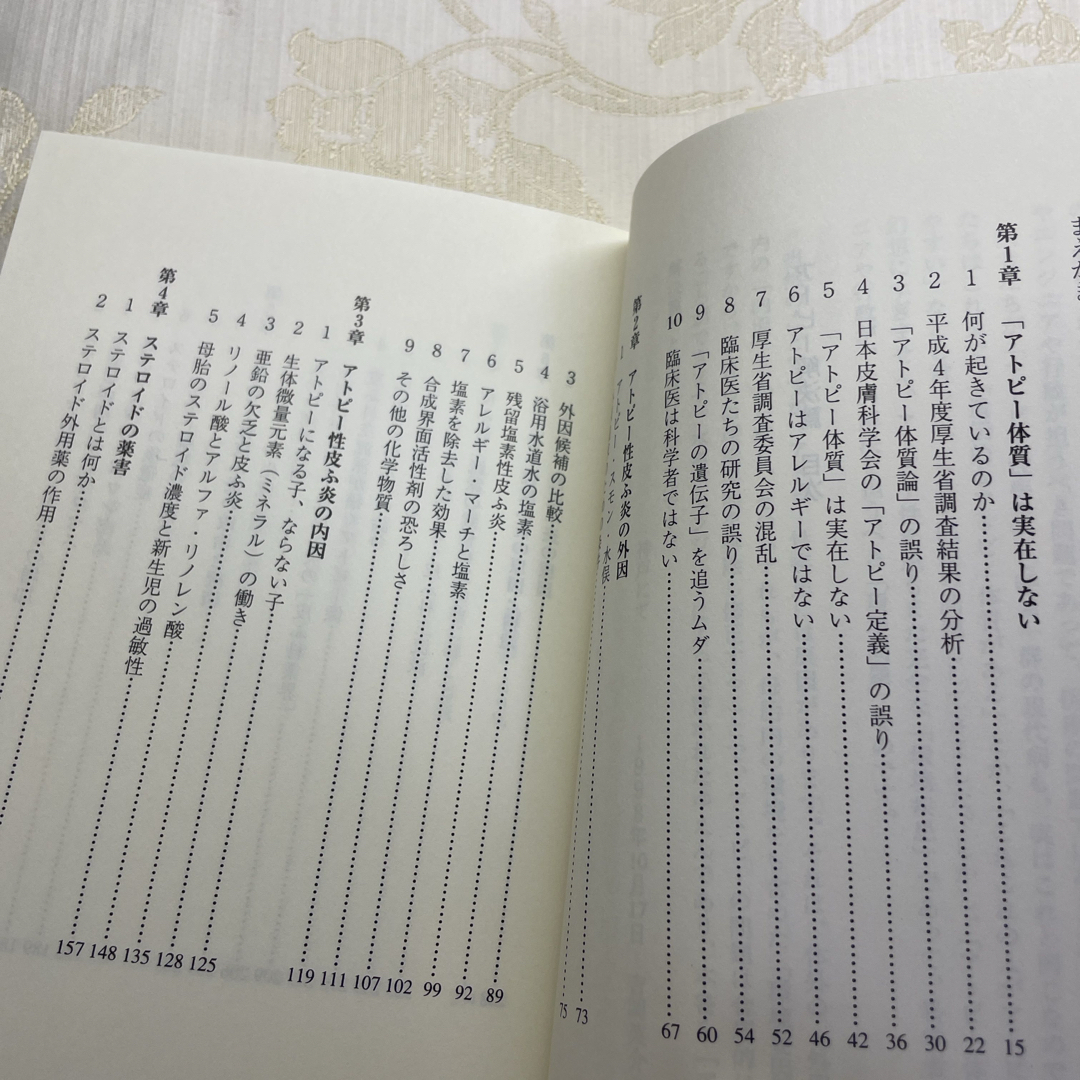 まえがき
第1章 「アトピー体質」は実在しない
1 何が起きているのか……15
2 平成4年度厚生省調査結果の分析……22
3 「アトピー体質論」の誤り……30
4 日本皮膚科学会の「アトピー定義」の誤り……36
5 「アトピー体質」は実在しない……42
6 アトピーはアレルギーではない……46
7 厚生省調査委員会の混乱……52
8 臨床医たちの研究の誤り……54
9 「アトピーの遺伝子」を追うムダ……60
10 臨床医は科学者ではない……67
第2章 アトピー性皮ふ炎の外因
1 アトピー・スモン・水俣……73
75
3 外因候補の比較……89
4 浴用水道水の塩素……92
5 残留塩素性皮ふ炎……99
6 アレルギー・マーチと塩素……102
7 塩素を除去した効果……107
8 合成界面活性剤の恐ろしさ……111
9 その他の化学物質……119
第3章 アトピー性皮ふ炎の内因
1 アトピーになる子、ならない子……125
2 生体微量元素(ミネラル)の働き……128
3 亜鉛の欠乏と皮ふ炎……135
4 リノール酸とアルファ・リノレン酸……148
5 母胎のステロイド濃度と新生児の過敏性……157
第4章 ステロイドの薬害
1 ステロイドとは何か……
2 ステロイド外用薬の作用……